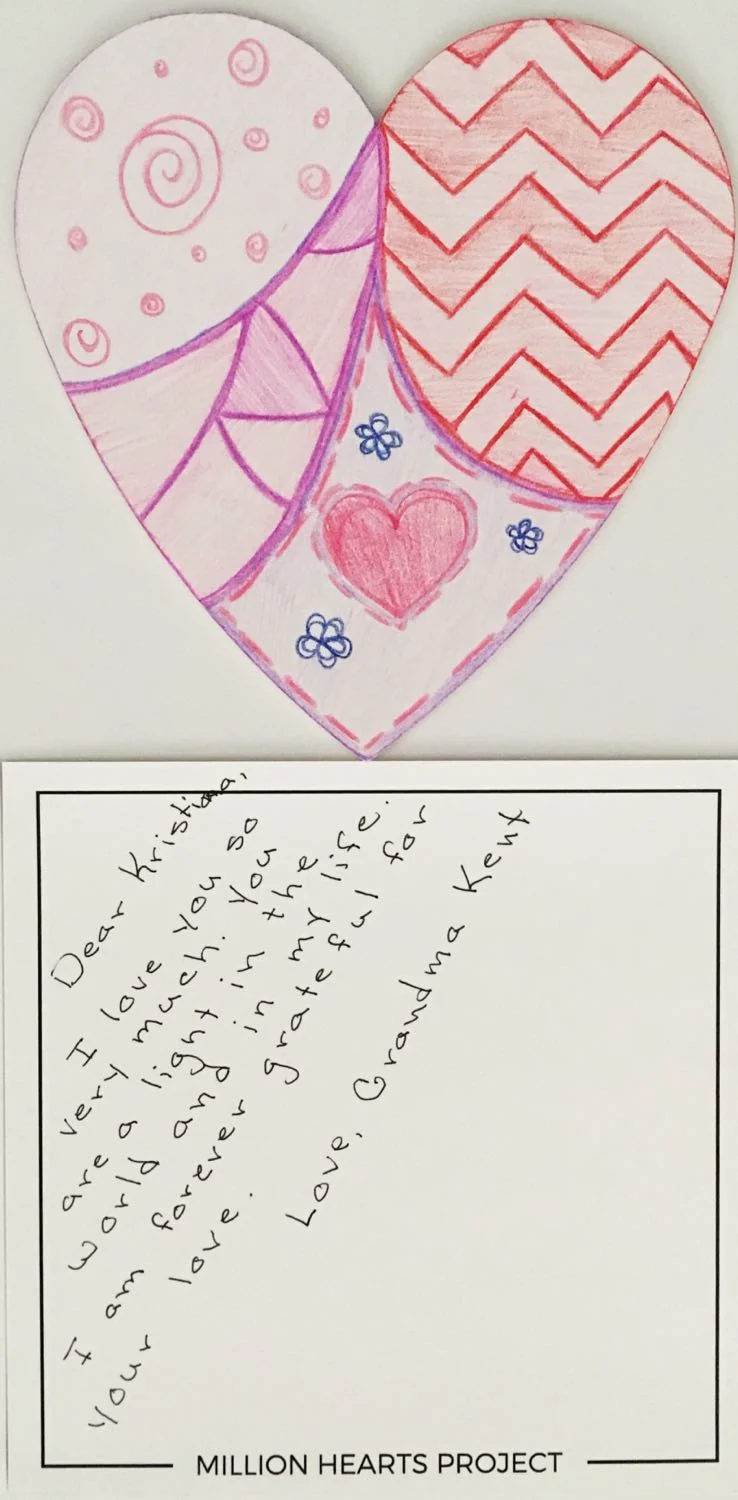 Dear Kristina,
I love you so
very much. You
are a light in the
world and in my life.
I am forever grateful for
your love.
Love, Grandma Kent
MILLION HEARTS PROJECT